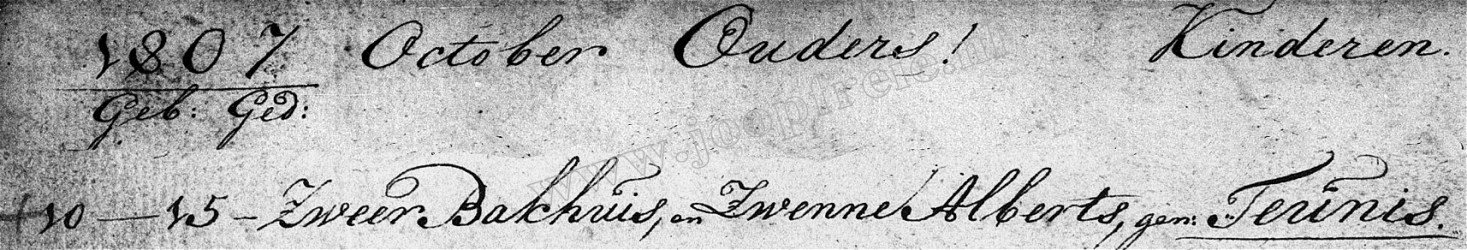 1807 October Ouders! Kinderen.
Geb: Ged:
10 — 15 - Zweer Bakhuis, en Zwenne Alberts, gen: Teunis.